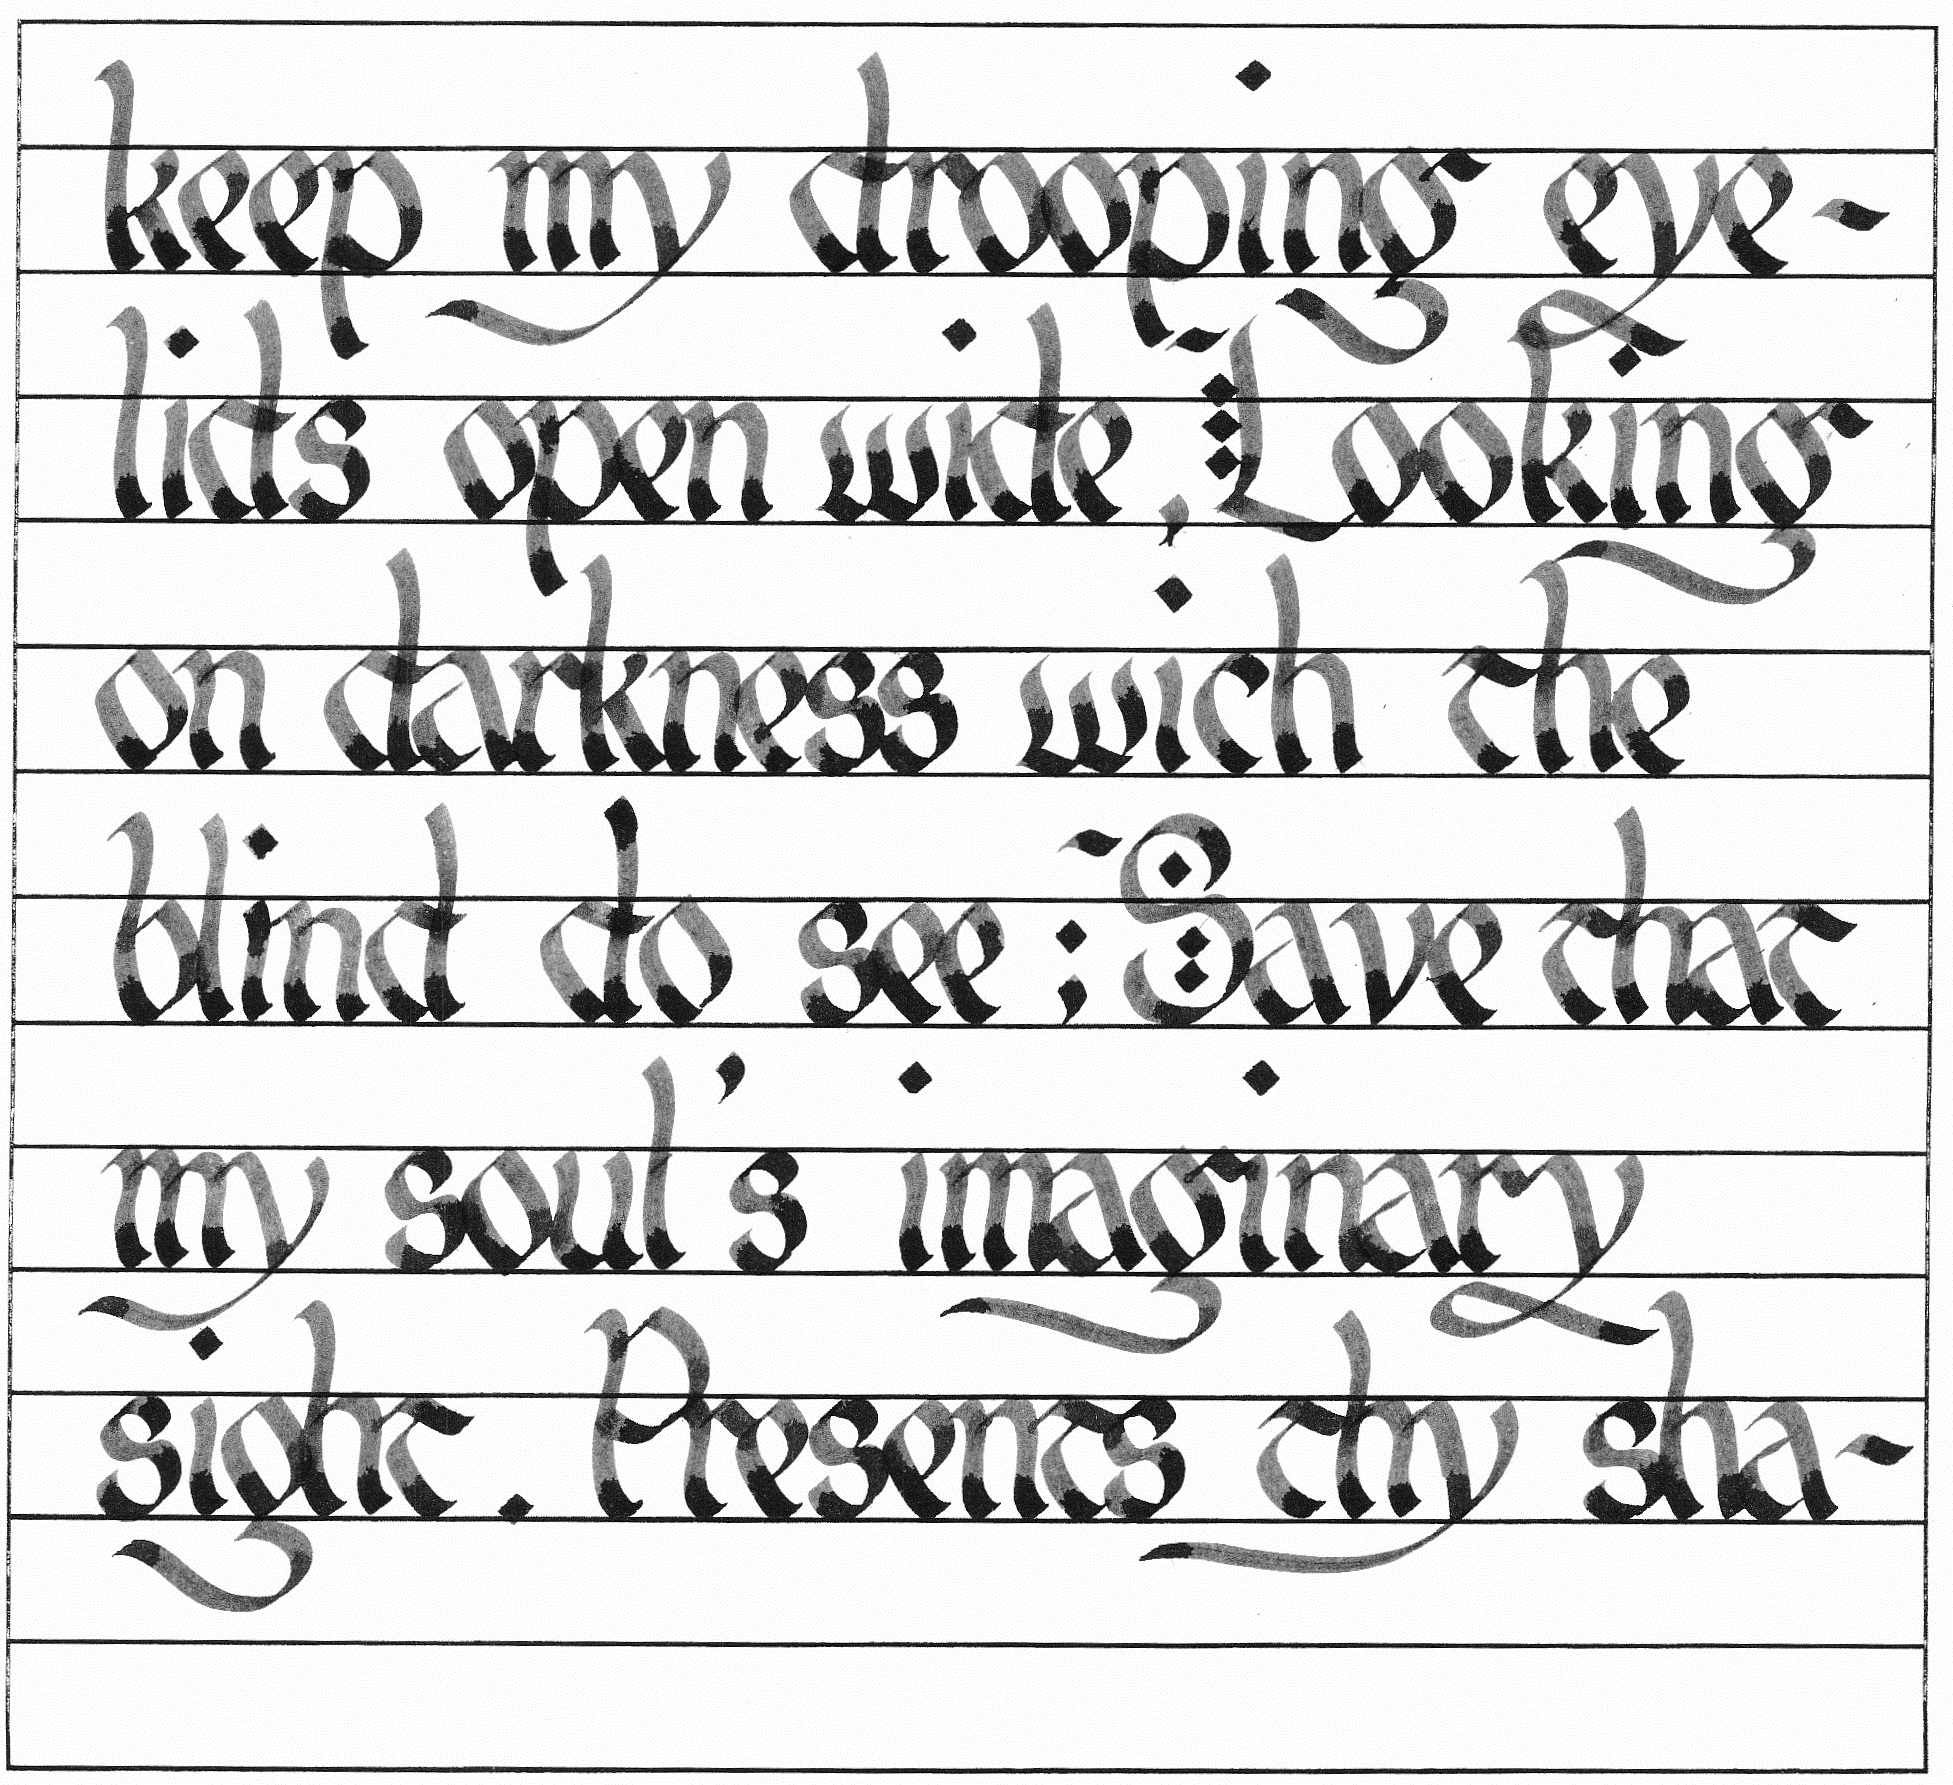 keep my drooping eye-
lids open wide, Looking
on darkness wich the
blind do see; Save that
my soul's imaginary
sight. Presents thy sha-